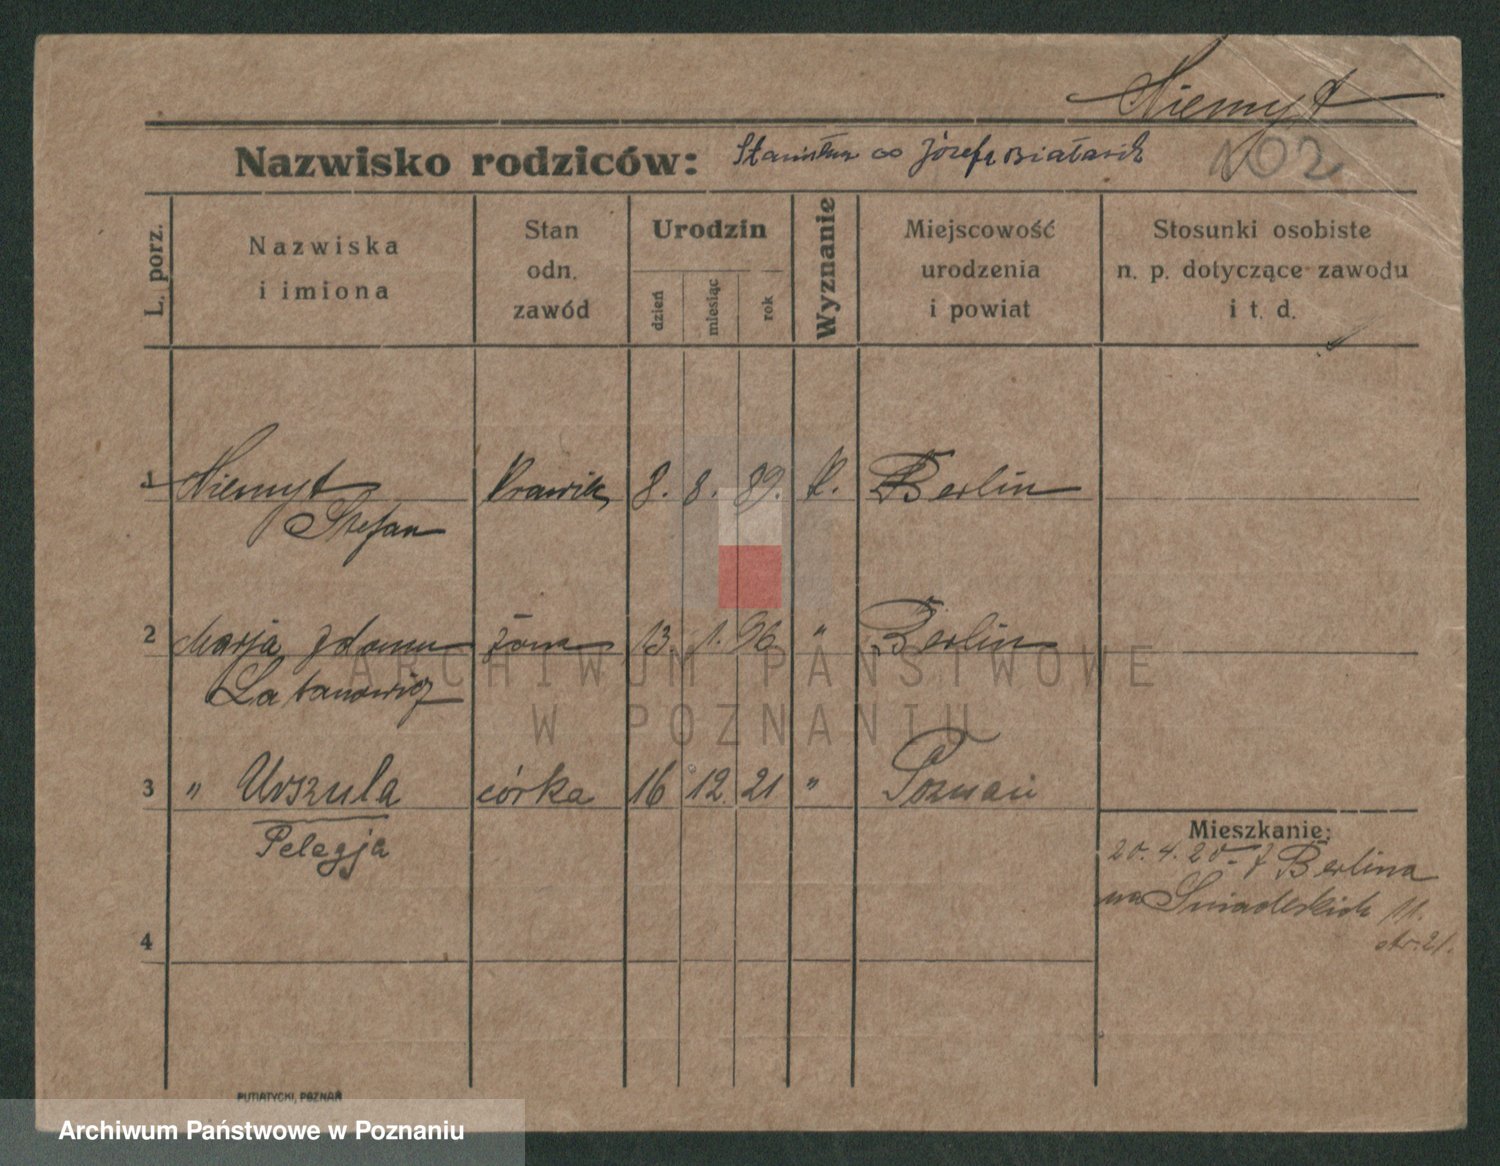 Niemyt
Nazwisko rodziców: Stanisław ∞ Józefa Białasik
102
L. porz.
Nazwiska
i imiona
Stan
odn.
zawód
Urodzin
dzień
miesiąc
rok
Wyznanie
Miejscowość
urodzenia
i powiat
Stosunki osobiste
n. p. dotyczące zawodu
i t. d.
1 Niemyt krawiec 8. 8. 89. k. Berlin
Stefan
2 Marja z domu żona 13. 1. 96 " Berlin
Latanowicz
3 " Urszula córka 16 12. 21 " Poznań
Pelagja
Mieszkanie:
20. 4. 20 z Berlina
na Śniadeckich 11.
str. 21.
4
PUTIATYCKI, POZNAŃ
ARCHIWUM PAŃSTWOWE
W POZNANIU
Archiwum Państwowe w Poznaniu